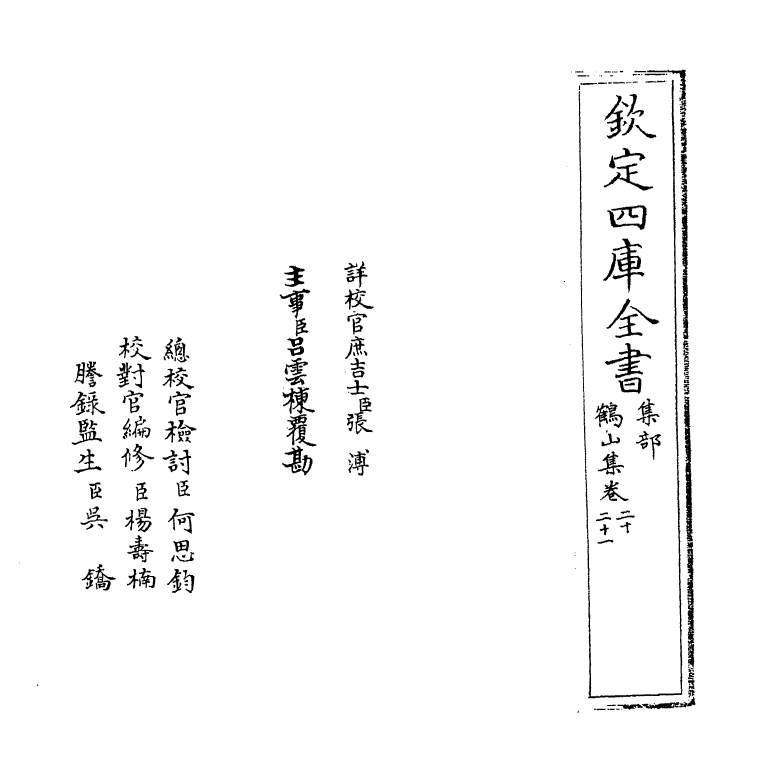 欽定四庫全書
集部
鶴山集卷二十
二十一
詳校官庶吉士臣張溥
主事臣呂雲棟覆勘
總校官檢討臣何思鈞
校對官編修臣楊壽楠
謄錄監生臣吳鐈